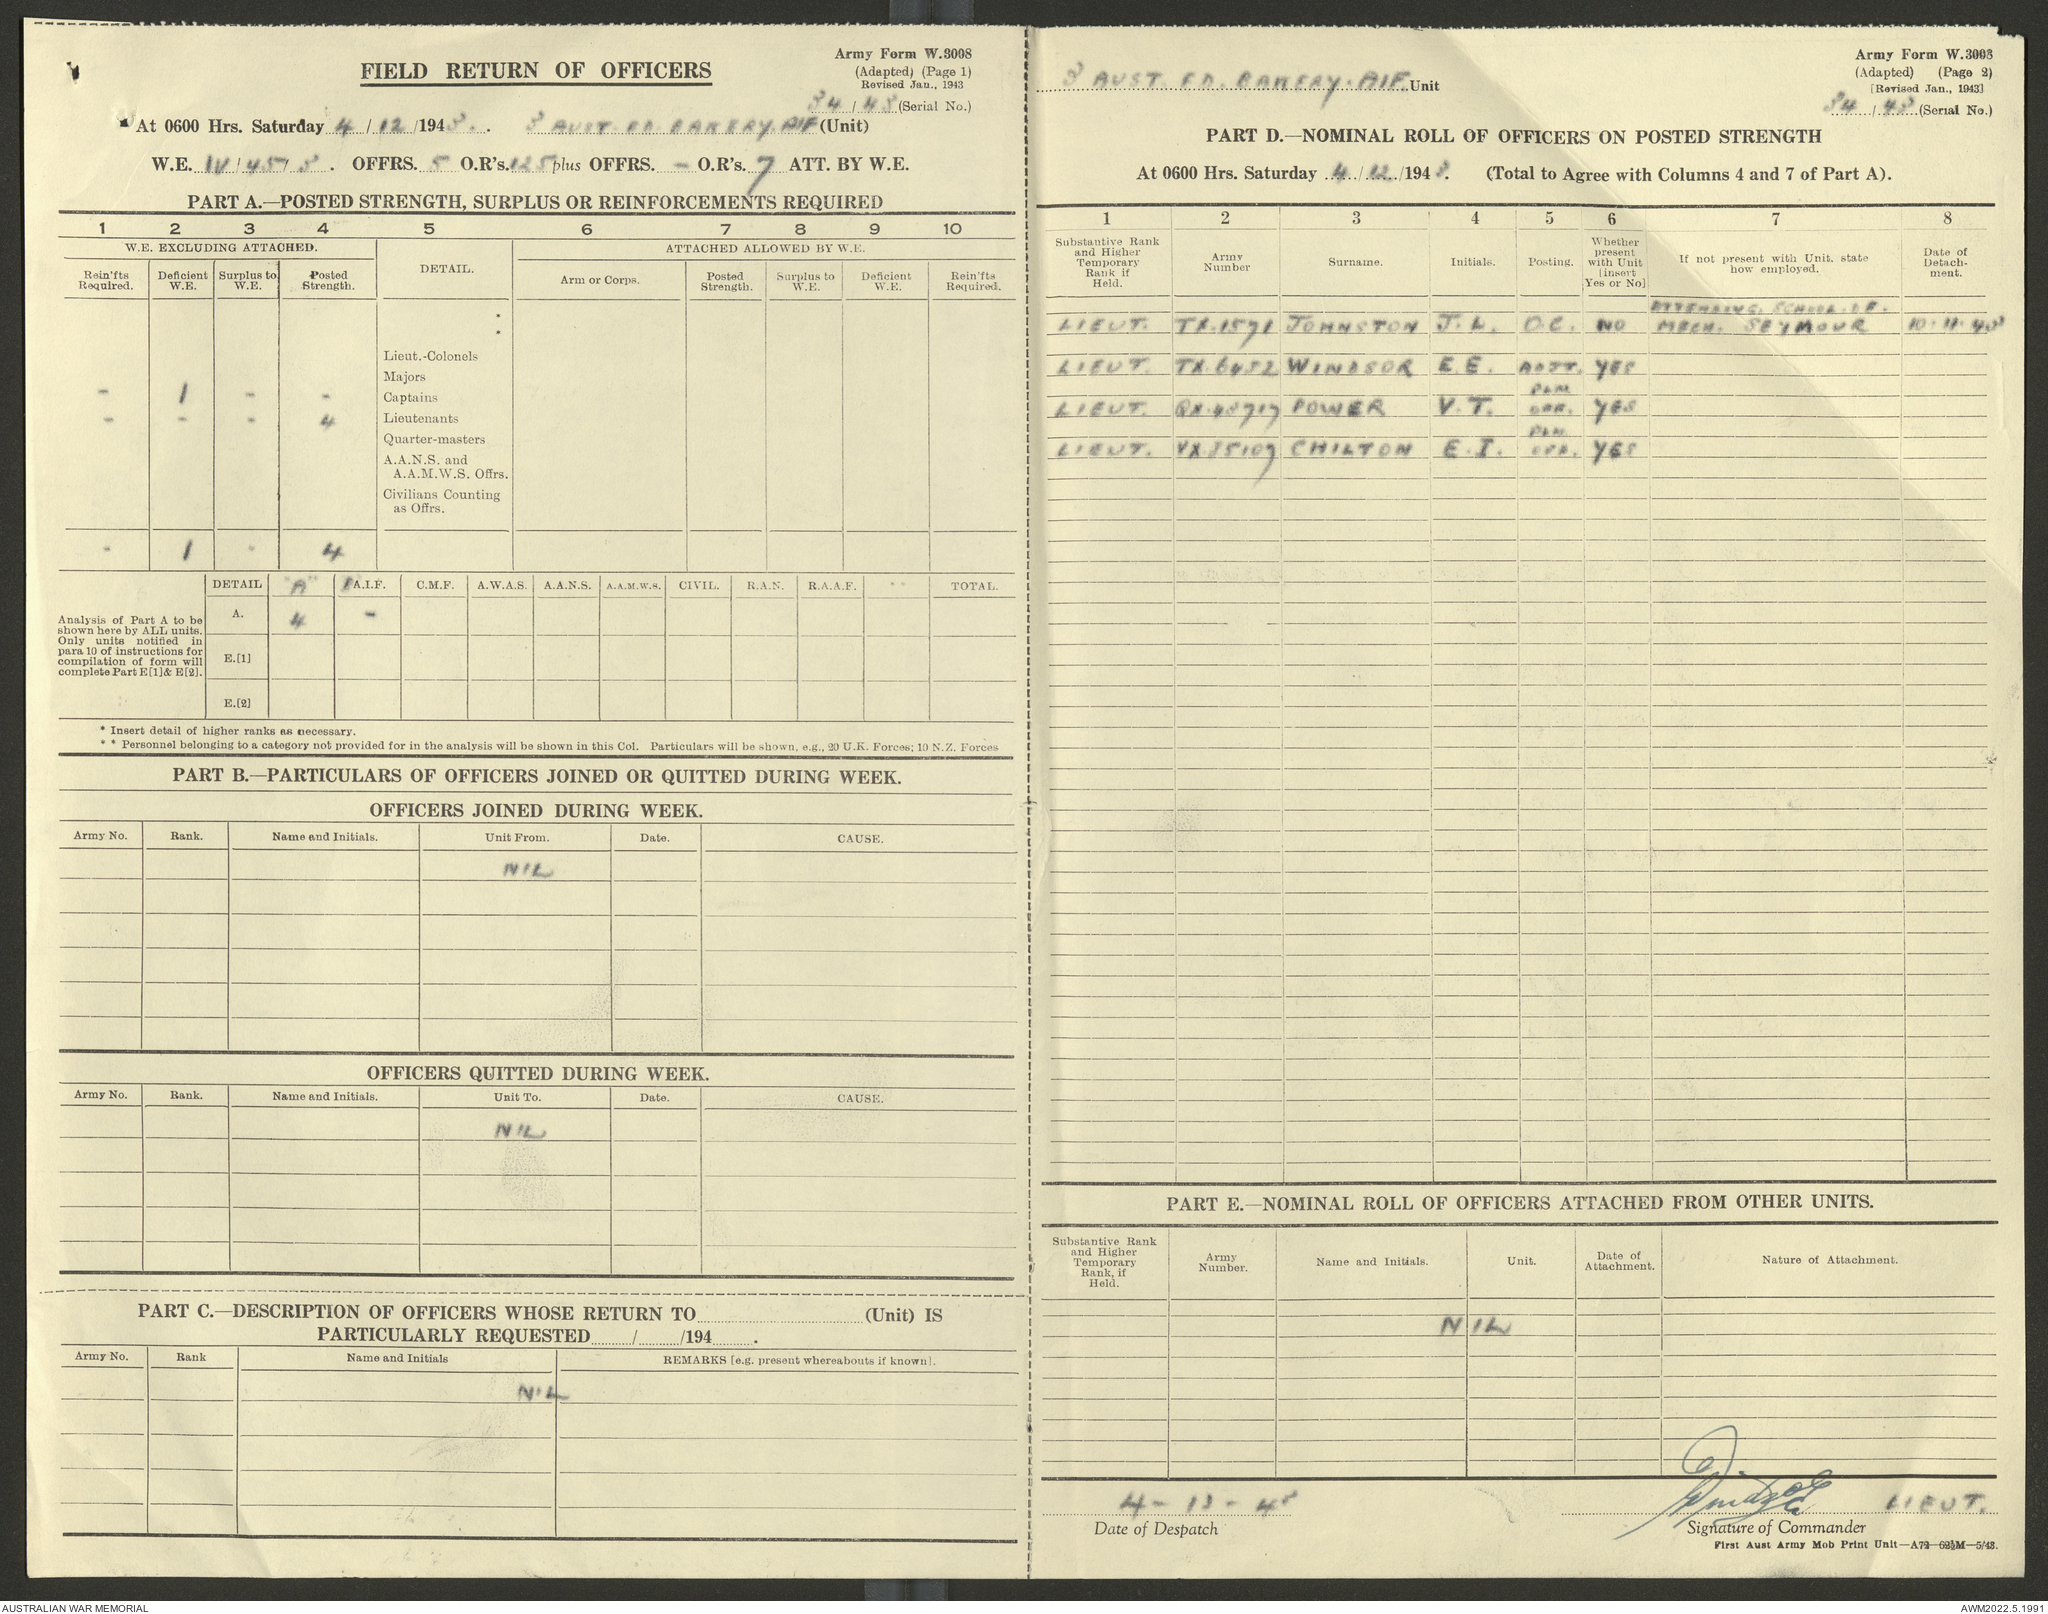 Army Form W.3008
FIELD RETURN OF OFFICERS
(Adapted) (Page 1)
Revised Jan., 1943
34/43 (Serial No.)
At 0600 Hrs. Saturday 4/12/1943. 3 AUST. FD. BAKERY. AIF (Unit)
W.E. IV/45/3. OFFRS. 5 O.R's. 125 plus OFFRS. - O.R's. 7 ATT. BY W.E.
PART A.—POSTED STRENGTH, SURPLUS OR REINFORCEMENTS REQUIRED
1 2 3 4 5 6 7 8 9 10
W.E. EXCLUDING ATTACHED. DETAIL. ATTACHED ALLOWED BY W.E.
Rein'fts Required. Deficient W.E. Surplus to W.E. Posted Strength. Arm or Corps. Posted Strength. Surplus to W.E. Deficient W.E. Rein'fts Required.
Lieut.-Colonels
Majors
- 1 - - Captains
- - - 4 Lieutenants
Quarter-masters
A.A.N.S. and
A.A.M.W.S. Offrs.
Civilians Counting
as Offrs.
- 1 - 4
DETAIL "A" A.I.F. C.M.F. A.W.A.S. A.A.N.S. A.A.M.W.S. CIVIL. R.A.N. R.A.A.F. ** TOTAL.
A. 4 -
Analysis of Part A to be
shown here by ALL units.
Only units notified in
para 10 of instructions for
compilation of form will
complete Part E[1]& E[2].
E.[1]
E.[2]
* Insert detail of higher ranks as necessary.
* * Personnel belonging to a category not provided for in the analysis will be shown in this Col. Particulars will be shown, e.g., 20 U.K. Forces; 10 N.Z. Forces
PART B.—PARTICULARS OF OFFICERS JOINED OR QUITTED DURING WEEK.
OFFICERS JOINED DURING WEEK.
Army No. Rank. Name and Initials. Unit From. Date. CAUSE.
NIL
OFFICERS QUITTED DURING WEEK.
Army No. Rank. Name and Initials. Unit To. Date. CAUSE.
NIL
PART C.—DESCRIPTION OF OFFICERS WHOSE RETURN TO (Unit) IS
PARTICULARLY REQUESTED / /194 .
Army No. Rank Name and Initials REMARKS [e.g. present whereabouts if known].
NIL
Army Form W.3008
3 AUST. FD. BAKERY. AIF. Unit
(Adapted) (Page 2)
[Revised Jan., 1943]
34/43 (Serial No.)
PART D.—NOMINAL ROLL OF OFFICERS ON POSTED STRENGTH
At 0600 Hrs. Saturday 4/12/1943. (Total to Agree with Columns 4 and 7 of Part A).
1 2 3 4 5 6 7 8
Substantive Rank and Higher Temporary Rank if Held. Army Number Surname. Initials. Posting. Whether present with Unit [insert Yes or No] If not present with Unit, state how employed. Date of Detachment.
ATTENDING SCHOOL OF.
LIEUT. TX.1571 JOHNSTON J.L. O.C. NO MECH. SEYMOUR 10.11.43
LIEUT. TX.6452 WINDSOR E.E. ADJT. YES
PLN.
LIEUT. QX.48717 POWER V.T. OFR. YES
PLN.
LIEUT. VX.85107 CHILTON E.I. OFR. YES
PART E.—NOMINAL ROLL OF OFFICERS ATTACHED FROM OTHER UNITS.
Substantive Rank and Higher Temporary Rank, if Held. Army Number. Name and Initials. Unit. Date of Attachment. Nature of Attachment.
NIL
LIEUT.
Date of Despatch Signature of Commander
First Aust Army Mob Print Unit—A72—62½M—5/43.
AUSTRALIAN WAR MEMORIAL AWM2022.5.1991